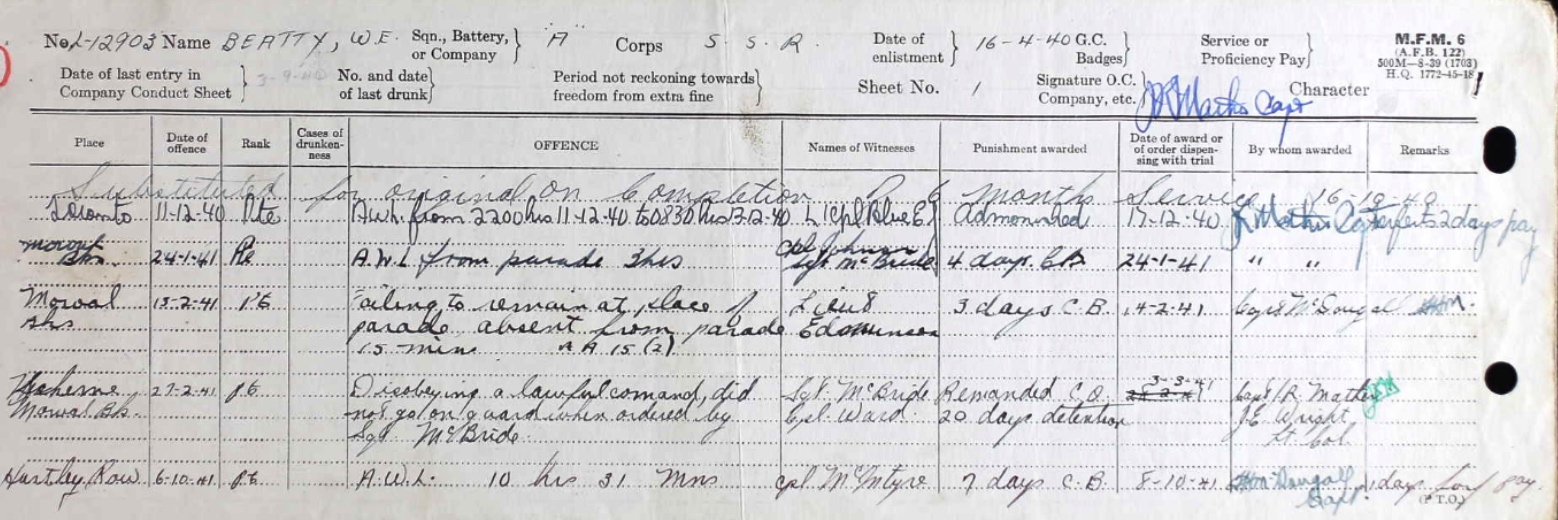 No L-12903 Name BEATTY, W.E. Sqn., Battery, or Company } A Corps S. S. R. Date of enlistment } 16-4-40 G.C. Badges} Service or Proficiency Pay} M.F.M. 6
(A.F.B. 122)
500M—8-39 (1703)
H.Q. 1772-45-18
Date of last entry in Company Conduct Sheet } 3-9-40 No. and date of last drunk} Period not reckoning towards freedom from extra fine } Sheet No. 1 Signature O.C. Company, etc.} Capt Character
Place Date of offence Rank Cases of drunken-ness OFFENCE Names of Witnesses Punishment awarded Date of award or of order dispen-sing with trial By whom awarded Remarks
Substituted for original on Completion 6 months Service 16-10-40
Toronto 11-12-40 Pte A.W.L. from 2200 hrs 11-12-40 to 0830 hrs L/Cpl Blue E.J. Admonished 17-12-40 Capt Forfeits 2 days pay
Cpl Johnson
24-1-41 Pte A.W.L. from parade 3 hrs Sgt McBride 4 days C.B. 24-1-41 " "
Mowat 13-2-41 Pte Failing to remain at place of Lieut 3 days C.B. 14-2-41 Capt McDougall
Bks parade absent from parade Edmunson
15 min A A 15 (2)
27-2-41 Pte Disobeying a lawful comand, did Sgt. McBride Remanded C.O. 3-3-41 Capt
Mowat Bks. not go on guard when ordered by Cpl. Ward 20 days detention J.E. Wright
Sgt McBride Lt Col.
Hartley Row 6-10-41 Pte A.W.L. 10 hrs 31 mns cpl McIntyre 7 days C.B. 8-10-41 Capt. 1 days pay.
(P.T.O.)